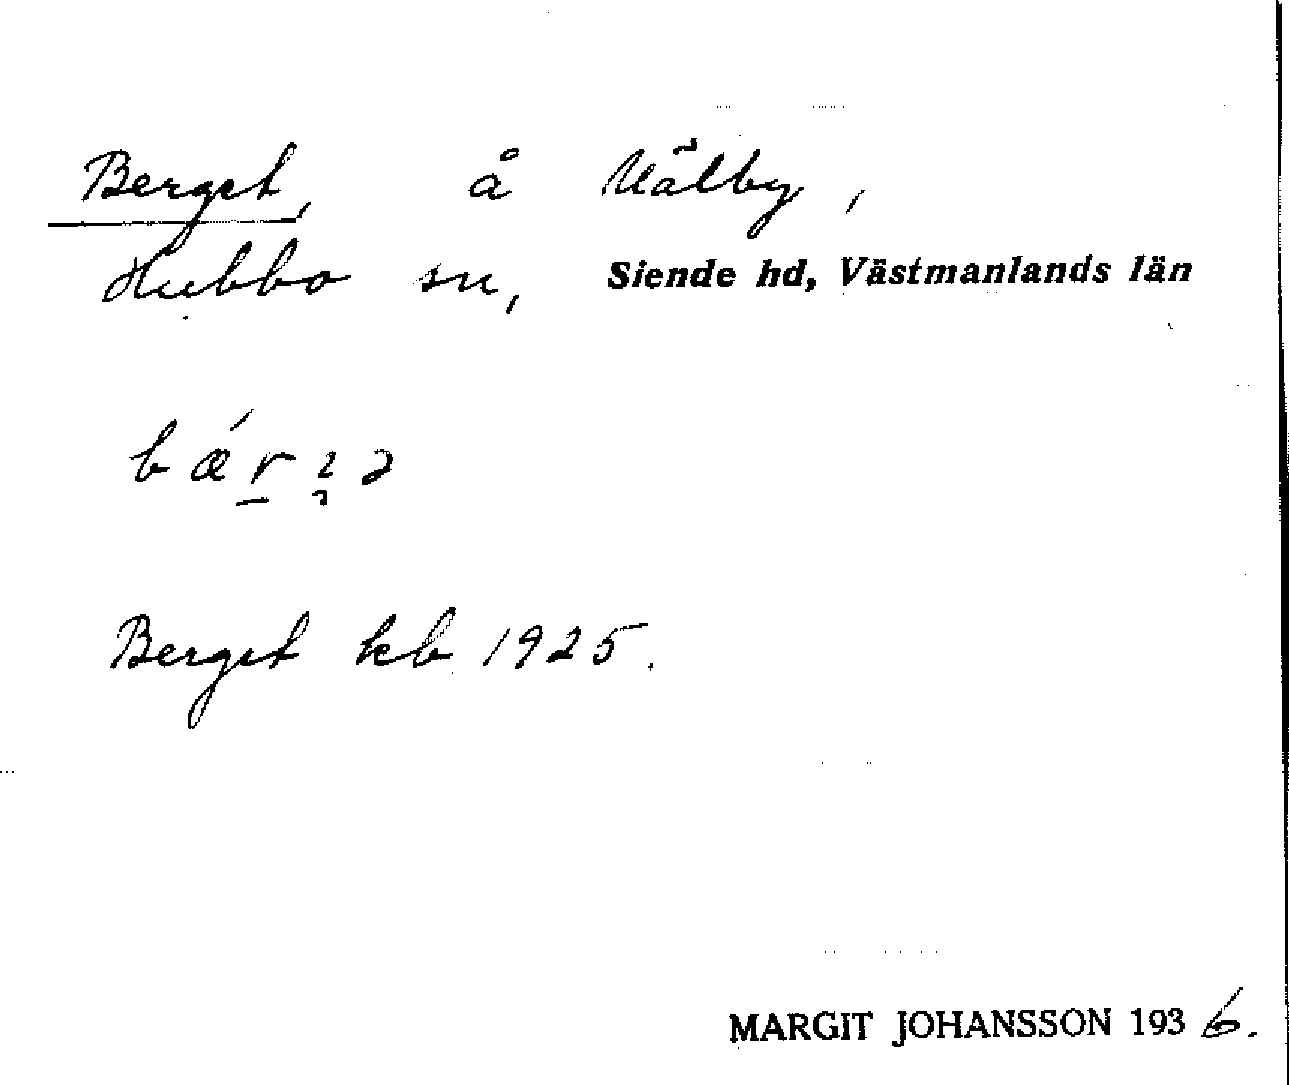 Berget, å Mälby,
Hubbo sn, Siende hd, Västmanlands län
Berget kb 1925.
MARGIT JOHANSSON 1936.